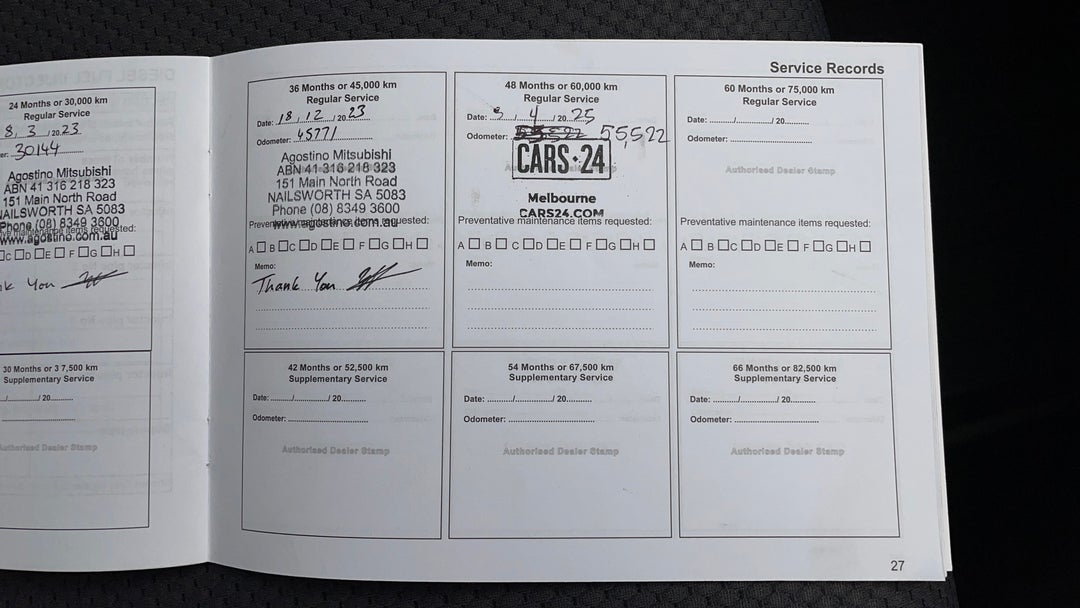 Service Records
24 Months or 30,000 km
Regular Service
8, 3 / 20 23
30144
Agostino Mitsubishi
ABN 41 316 218 323
151 Main North Road
NAILSWORTH SA 5083
Phone (08) 8349 3600
www.agostino.com.au
maintenance items requested:
C D E F G H
You
30 Months or 3 7,500 km
Supplementary Service
/ / 20
Authorised Dealer Stamp
36 Months or 45,000 km
Regular Service
Date: 18, 12 / 20 23
Odometer: 45771
Agostino Mitsubishi
ABN 41 316 218 323
151 Main North Road
NAILSWORTH SA 5083
Phone (08) 8349 3600
Preventative maintenance items requested:
www.agostino.com.au
A B C D E F G H
Memo:
Thank You
42 Months or 52,500 km
Supplementary Service
Date: / / 20
Odometer:
Authorised Dealer Stamp
48 Months or 60,000 km
Regular Service
Date: 3 / 4 / 20 25
Odometer: 55,522
CARS24
Melbourne
CARS24.COM
Preventative maintenance items requested:
A B C D E F G H
Memo:
54 Months or 67,500 km
Supplementary Service
Date: / / 20
Odometer:
Authorised Dealer Stamp
60 Months or 75,000 km
Regular Service
Date: / / 20
Odometer:
Authorised Dealer Stamp
Preventative maintenance items requested:
A B C D E F G H
Memo:
66 Months or 82,500 km
Supplementary Service
Date: / / 20
Odometer:
Authorised Dealer Stamp
27